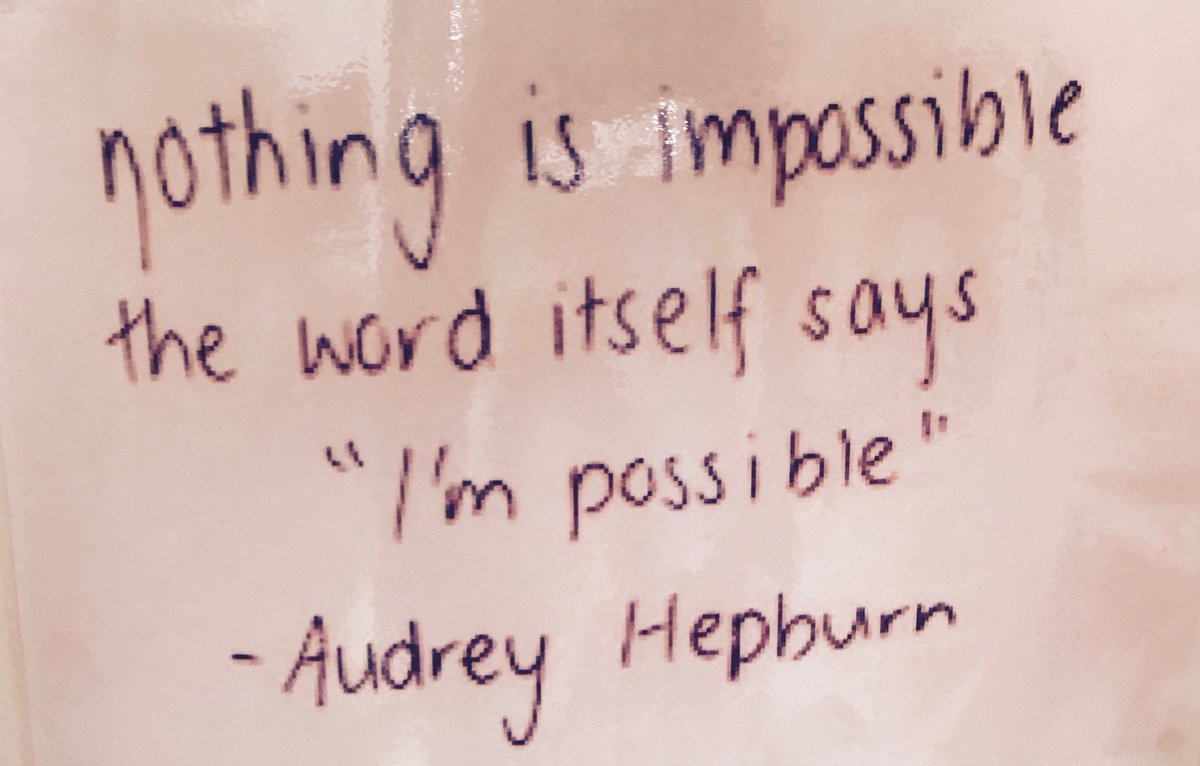 nothing is impossible
the word itself says
"I'm possible"
- Audrey Hepburn